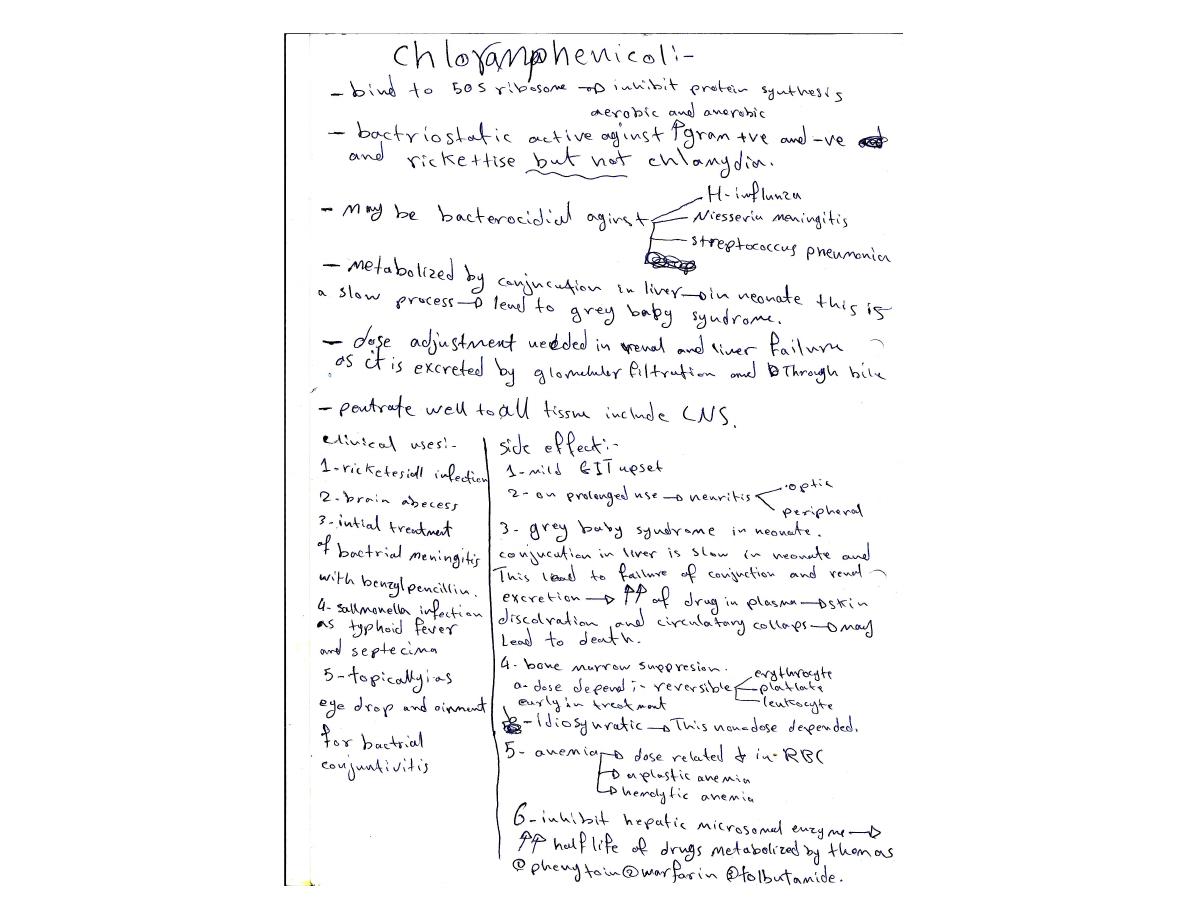 Chloramphenicol:-
- bind to 50S ribosome → inhibit protein synthesis
aerobic and anerobic
- bactriostatic active aginst ↑gram +ve and -ve
and rickettise but not chlamydia.
- may be bacterocidial aginst
H-influnza
Niesseria meningitis
streptococcus pneumonia
- metabolized by conjucution in liver → in neonate this is
a slow process → lead to grey baby syndrome.
- dose adjustment needed in renal and liver failure
as it is excreted by glomelular filtration and through bile
- pentrate well to all tissue include CNS.
clinical uses:-
1- ricketesiall infection
2- brain abecess
3- intial treatment
of bactrial meningitis
with benzylpencillin.
4- sallmonella infection
as typhoid fever
and septecima
5- topically:as
eye drop and oinment
for bactrial
conjuntivitis
side effect:-
1- mild GIT upset
2- on prolonged use → neuritis
optic
peripheral
3- grey baby syndrome in neonate.
conjucution in liver is slow in neonate and
This lead to failure of conjuction and renal
excretion → ↑↑ of drug in plasma → skin
discolration and circulatary collaps → may
Lead to death.
4- bone marrow suppresion.
a- dose depend:- reversible
erythrocyte
platlate
leukocyte
early in treatment
b- Idiosynratic → This non-dose depended.
5- anemia → dose related ↓ in RBC
→ aplastic anemia
→ hemolytic anemia
6- inhibit hepatic microsomal enzyme →
↑↑ half life of drugs metabolized by them as
① phenytoin ② warfarin ③ tolbutamide.